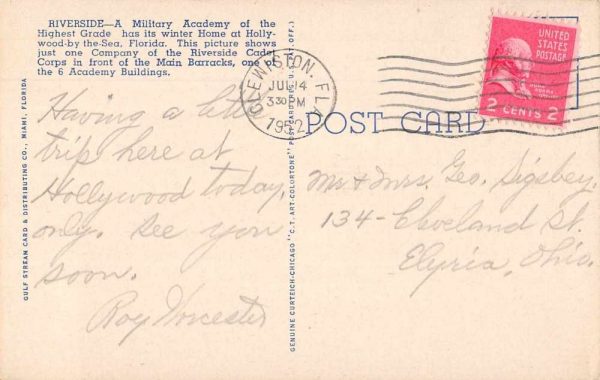 RIVERSIDE—A Military Academy of the
Highest Grade has its winter Home at Holly-
wood-by the-Sea, Florida. This picture shows
just one Company of the Riverside Cadet
Corps in front of the Main Barracks, one of
the 6 Academy Buildings.
Having a little
trip here at
Hollywood today,
only. See you
soon.
Roy Worcester
GULF STREAM CARD & DISTRIBUTING CO., MIAMI, FLORIDA
GENUINE CURTEICH-CHICAGO "C.T. ART-COLORTONE" POST CARD (REG. U.S. PAT. OFF.)
CLEWISTON, FLA.
JUL 14
330 PM
1952
UNITED
STATES
POSTAGE
JOHN ADAMS
2 CENTS 2
POST CARD
Mr & Mrs. Geo. Sigsbey.
134-Cleveland St.
Elyria, Ohio.